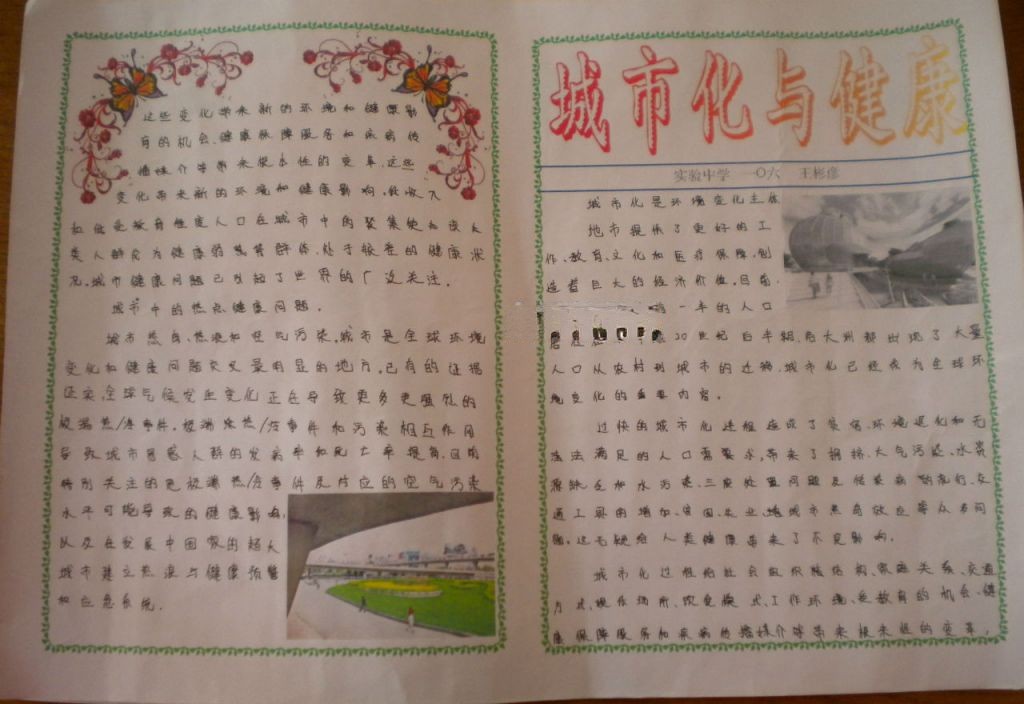 城市化与健康
实验中学 一〇六 王彬彦
城市化是环境变化主体
地市提供了更好的工
作、教育、文化和医疗保障,创
造着巨大的经济价值。目前,
一半的人口
20世纪后半期,各大州都出现了大量
人口从农村到城市的迁移,城市化已经成为全球环
境变化的重要内容。
过快的城市化进程造成了贫穷、环境退化和无
法满足的人口需要求,带来了拥挤、大气污染、水资
源缺乏和水污染、三废处置问题及传染病的流行、交
通工具的增加、贫困、失业、城城市热岛效应等众多问
题。这无疑给人类健康带来了不良影响。
城市化过程给社会组织阶结构、家庭关系、交通
方式、娱乐场所、饮食模式、工作环境、受教育的机会、健
康保障服务和疾病传播媒介等带来根本性的变革,
这些变化带来新的环境和健康影
育的机会、健康保障服务和疾病传
播媒介等带来根本性的变革。这些
变化带来新的环境和健康影响。低收入
和低受教育程度人口在城市中的聚集使和该大
类人群成为健康弱势等群体,处于较差的健康状
况。城市健康问题已引起了世界的广泛关注。
城市中的热点健康问题。
城市热岛、热浪和空气污染,城市是全球环境
变化和健康问题交叉最明显的地方,已有的证据
证实,全球气候发生变化正在导致更多更强烈的
极端热/冷事件。极端炎热/冷事件和污染相互作用
导致城市易感人群的发病率和死亡率提高。目前
特别关注的是极端热/冷事件及对应的空气污染
水平可能导致的健康影响,
以及在发展中国家的超大
城市建立热浪与健康预警
和应急系统。